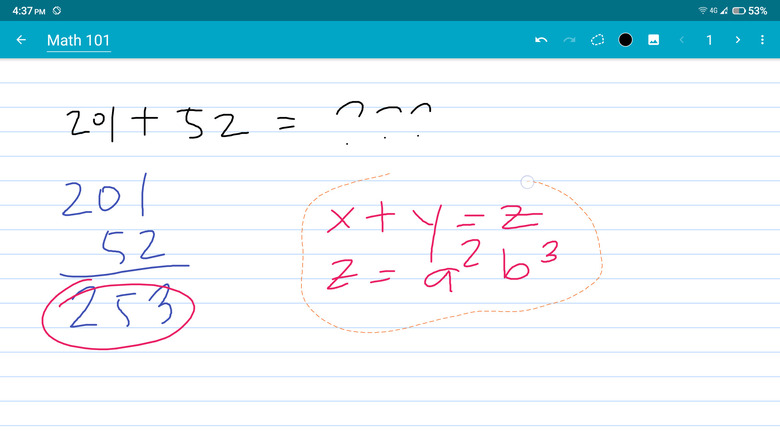 4:37 PM 4G 53%
Math 101 1
201 + 52 = ???
201
52
253
x + y = z
z = a² b³